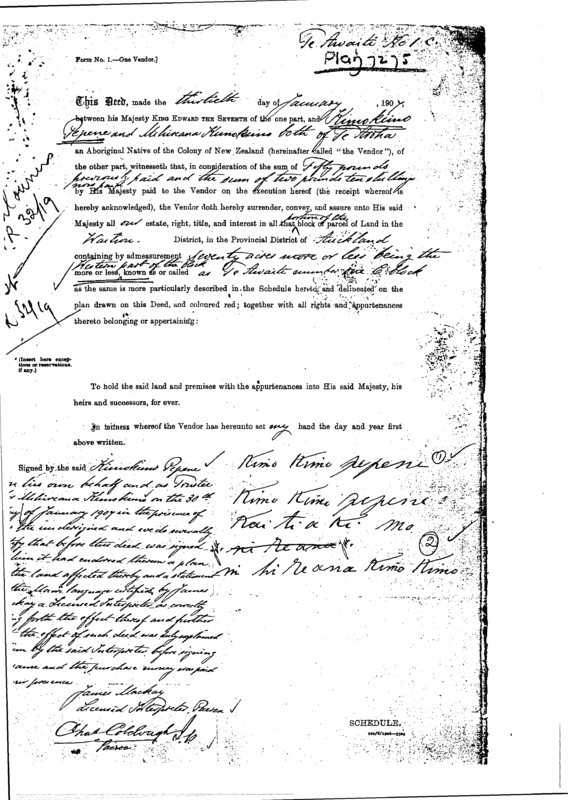 Te Awaite No 1 C.
Plan 7275
Form No. 1.—One Vendor.]
This Deed, made the thirtieth day of January, 1907,
between his Majesty KING EDWARD THE SEVENTH of the one part, and Kimokimo
Pepene and Mihireana Kimokimo both of Te Aroha
an Aboriginal Native of the Colony of New Zealand (hereinafter called "the Vendor"), of
the other part, witnesseth that, in consideration of the sum of Fifty pounds
previously paid and the sum of two pounds ten shillings
now paid
by His Majesty paid to the Vendor on the execution hereof (the receipt whereof is
hereby acknowledged), the Vendor doth hereby surrender, convey, and assure unto His said
Majesty all our estate, right, title, and interest in all that portion of the block or parcel of Land in the
District, in the Provincial District of Auckland
containing by admeasurement seventy acres more or less being the
Western part of the block
more or less, known or called as Te Awaite number one C block
as the same is more particularly described in the Schedule hereto, and delineated on the
plan drawn on this Deed, and coloured red; together with all rights and appurtenances
thereto belonging or appertaining:
* (Insert here excep-
tions or reservations,
if any.)
To hold the said land and premises with the appurtenances into His said Majesty, his
heirs and successors, for ever.
In witness whereof the Vendor has hereunto set my hand the day and year first
above written.
Signed by the said Kimokimo Pepene
his own behalf and as Trustee
Mihireana Kimokimo on the 30th
of January 1907 in the presence of
the undersigned and we do severally
that before this deed was signed
him it had endorsed thereon a plan
the land affected thereby and a statement
the Maori language certified by James
a Licensed Interpreter as correctly
forth the effect thereof and further
the effect of such deed was duly explained
by the said Interpreter before signing
same and the purchase money was paid
presence
James Mackay
Licensed Interpreter, Paeroa
J.P.
Paeroa
Kimo Kimo pepene 1
Kimo Kimo pepene
Kai ti a ki mo
2
mi hi Re ana Kimo Kimo
SCHEDULE.